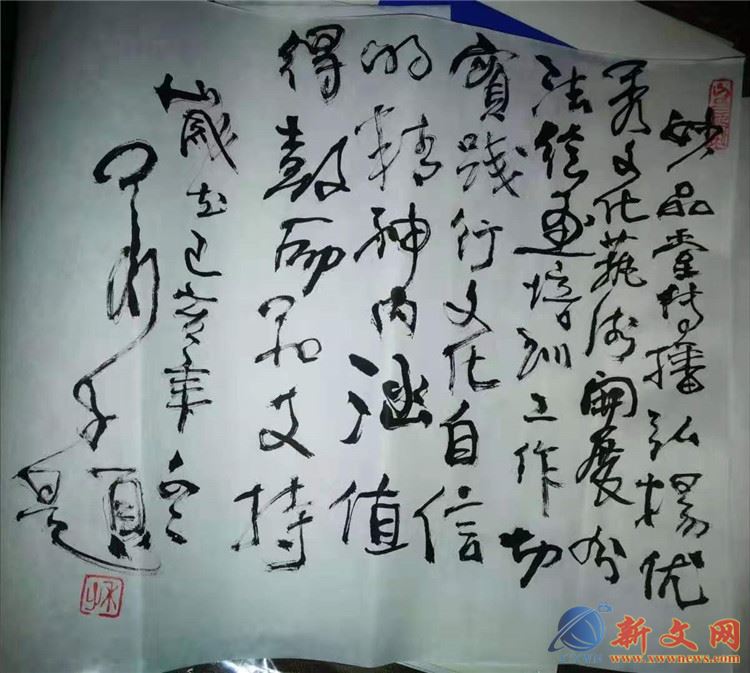 妙品堂传播弘揚优
秀文化藝術開展书
法绘画培训工作切
實践行文化自信
的精神内涵值
得鼓励和支持
歲在己亥年
題
新文网
www.xwwnews.com